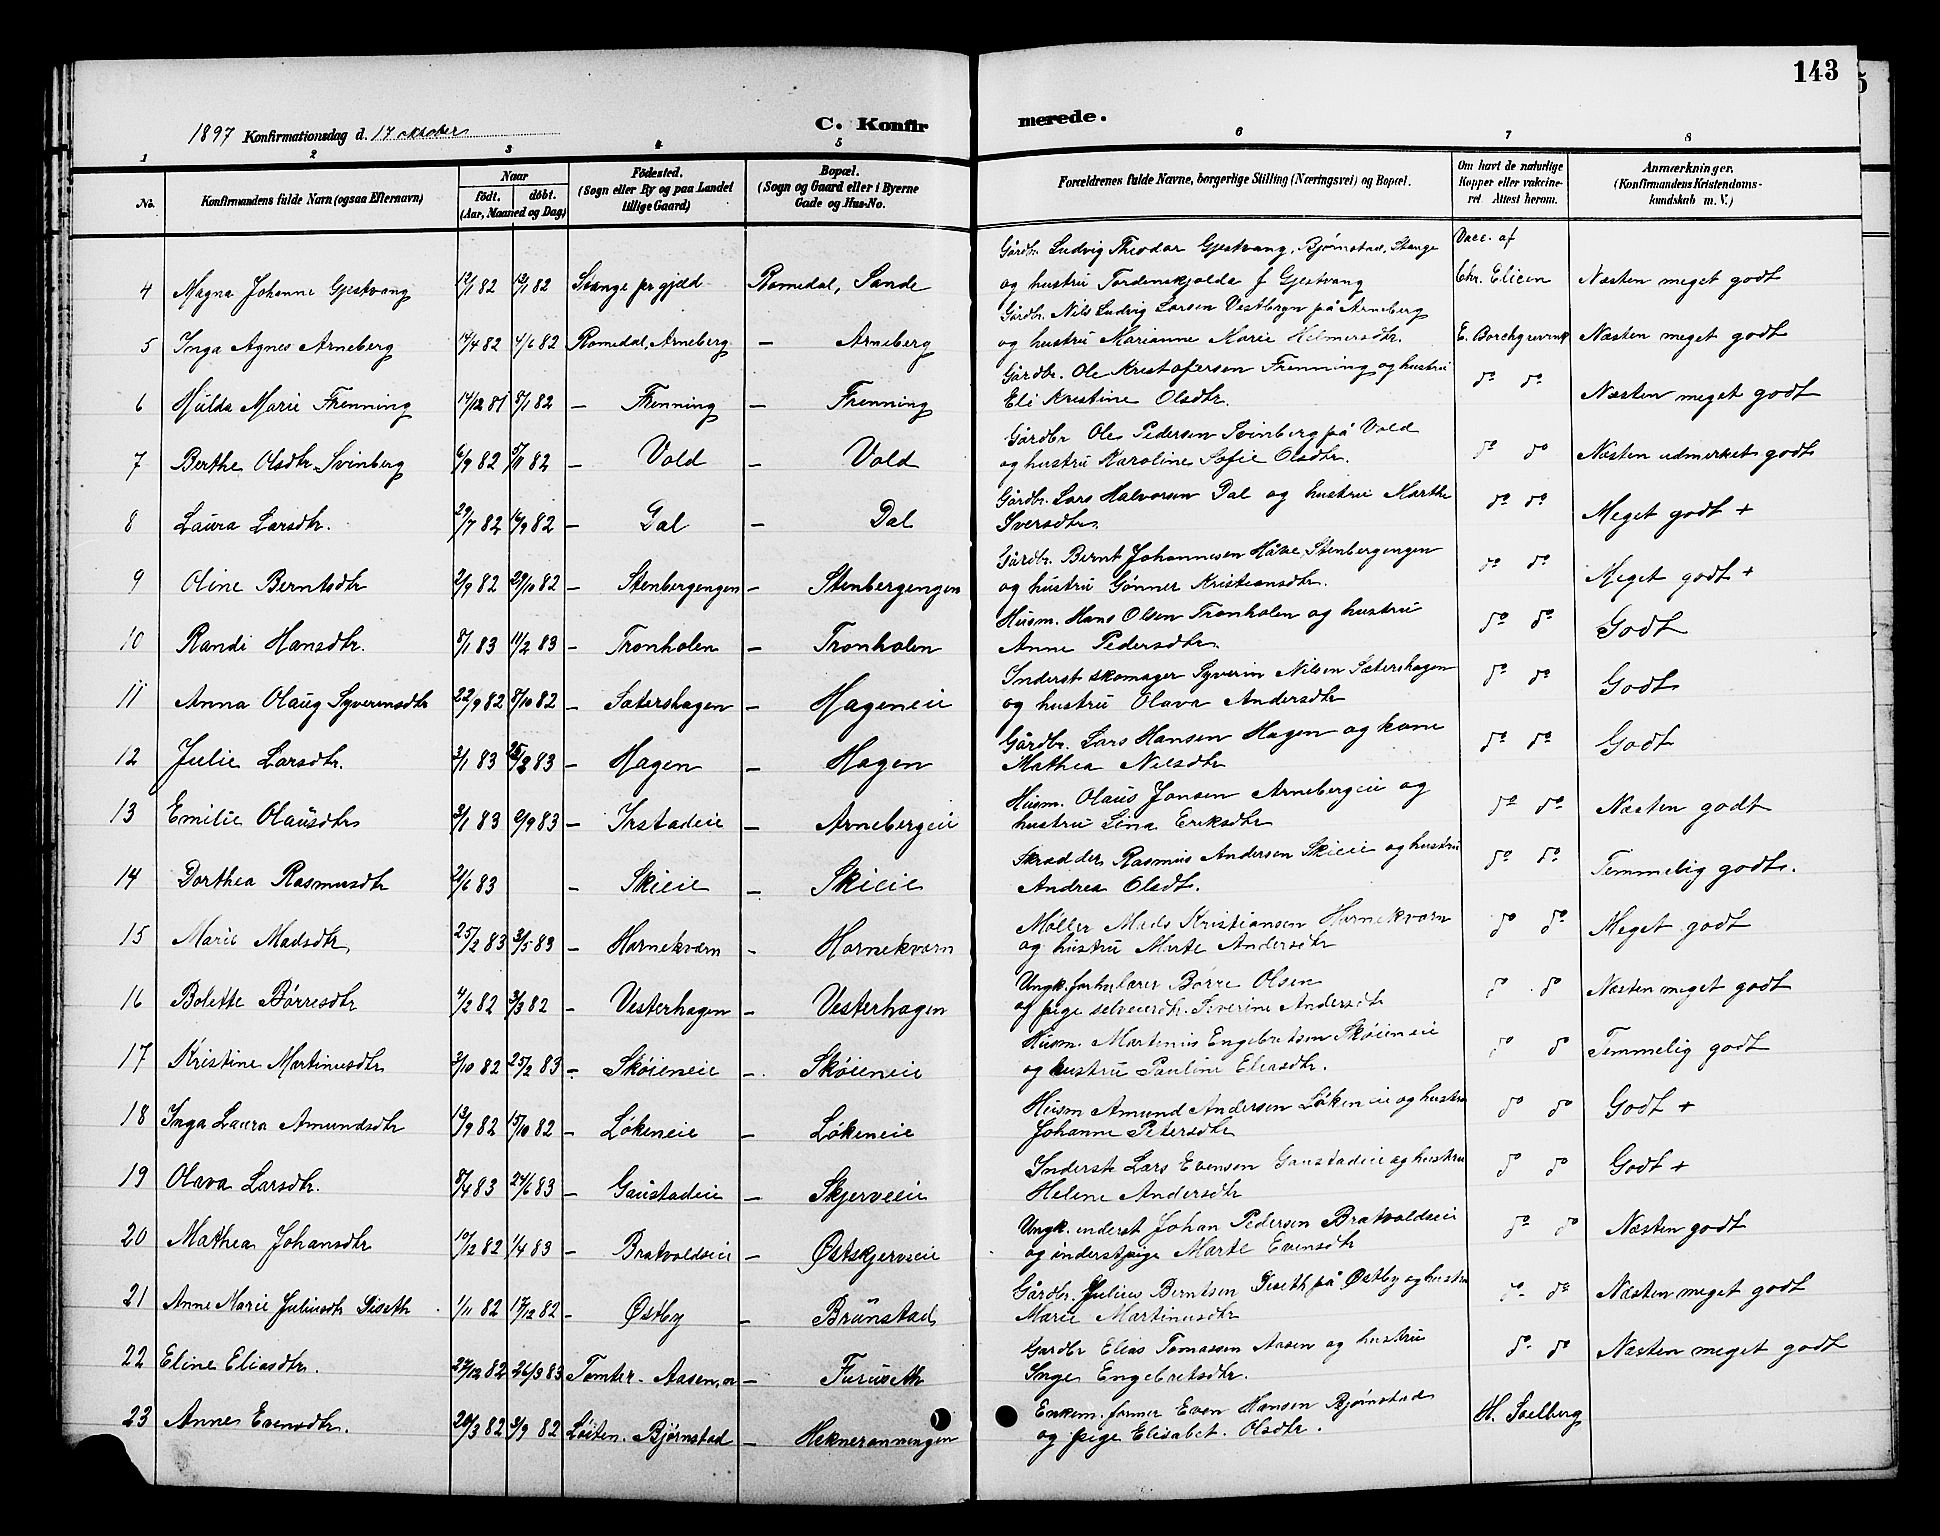 143
1897 Konfirmationsdag d. 17 oktober
C. Konfirmerede.
1 2 3 4 5 6 7 8
No.
Konfirmandens fulde Navn (ogsaa Efternavn)
Naar
født. døbt.
(Aar, Maaned og Dag)
Fødested.
(Sogn eller By og paa Landet
tillige Gaard)
Bopæl.
(Sogn og Gaard eller i Byerne
Gade og Hus-No.
Forældrenes fulde Navne, borgerlige Stilling (Næringsvei) og Bopæl.
Om havt de naturlige
Kopper eller vakcine-
ret. Attest herom.
Anmærkninger.
(Konfirmandens Kristendoms-
kundskab m. V.)
Gårdbr. Ludvig Theodor Gjestvang, Bjørnstad, Stange Vacc. af
4 Magna Johanne Gjestvang 12/1 82 12/1 82 Stange prgjæld Romedal, Sande og hustru Tordenskjolda f Gjestvang Chr. Elieen Næsten meget godt
Gårdbr. Nils Ludvig Larsen Vestbryn på Arneberg
5 Inga Agnes Arneberg 14/4 82 4/6 82 Romedal, Arneberg – Arneberg og hustru Marianne Marie Hilmersdtr. E. Borchgrevink Næsten meget godt
Gårdbr. Ole Kristofersen Frenning og hustru
6 Hilda Marie Frenning 14/12 81 8/1 82 – Frenning – Frenning Eli Kristine Olsdtr. do do Næsten meget godt
Gårdbr Ole Pedersen Svinberg på Vold
7 Berthe Olsdtr. Svinberg 6/9 82 5/11 82 – Vold – Vold og hustru Karoline Sofie Olsdtr. do do Næsten udmerket godt
Gårdbr. Lars Halvorsen Dal og hustru Marthe
8 Laura Larsdtr. 29/7 82 16/9 82 – Dal – Dal Iversdtr. do do Meget godt +
Gårdbr. Bernt Johannesen Håve, Stenbergengen
9 Oline Berntsdtr 2/9 82 29/10 82 – Stenbergengen – Stenbergengen og hustru Gønner Kristiansdtr. do do Meget godt +
Husm. Hans Olsen Tronholen og hustru
10 Randi Hansdtr. 8/1 83 11/2 83 – Tronholen – Tronholen Anne Pedersdtr. do do Godt
Inderst skomager Syverin Nilsen Sætershagen
11 Anna Olaug Syverinsdtr 22/9 82 8/10 82 – Sætershagen – Hageneie og hustru Olava Andersdtr do do Godt
Gårdbr. Lars Hansen Hagen og kone
12 Julie Larsdtr. 3/1 83 25/2 83 – Hagen – Hagen Mathea Nilsdtr do do Godt
Husm. Olaus Jonsen Arnebergeie og
13 Emilie Olausdtr 3/1 83 9/9 83 – Irstadeie – Arnebergeie hustru Lina Eriksdtr do do Næsten godt
Skrædder Rasmus Andersen Skieie og hustru
14 Dorthea Rasmusdtr 2/6 83 – Skieie – Skieie Andrea Olsdtr. do do Temmelig godt.
Møller Mads Kristiansen Hornekværn
15 Marie Madsdtr 25/2 83 3/5 83 – Hornekværn – Hornekværn og hustru Marte Andersdtr do do Meget godt
Ungk. Børre Olsen
16 Bolette Børresdtr 4/2 82 3/3 82 – Vesterhagen – Vesterhagen og pige selveierdtr. Severine Andersdtr do do Næsten meget godt
Husm. Martinius Engebretsen Skøieneie
17 Kristine Martinusdtr 3/10 82 25/2 83 – Skøieneie – Skøieneie og hustru Pauline Eliasdtr. do do Temmelig godt
Husm Amund Andersen Løkeneie og hustru
18 Inga Laura Amundsdtr 13/9 82 15/10 82 – Løkeneie – Løkeneie Johanne Petersdtr do do Godt +
Inderst Lars Evensen Gaustadeie og hustru
19 Olava Larsdtr. 8/4 83 24/6 83 – Gaustadeie – Skjerveeie Helene Andersdtr do do Godt +
Ungk. inderst Johan Pedersen Bratvoldseie
20 Mathea Johansdtr 10/12 82 1/4 83 – Bratvoldseie – Østskjerveeie og inderstpige Marte Evensdtr do do Næsten godt
Gårdbr. Julius Berntsen Diseth på Østby og hustru
21 Anne Marie Juliusdtr Diseth 1/11 82 17/12 82 – Østby – Brunstad Marie Martinusdtr do do Næsten meget godt
Gardbr Elias Tomassen Aasen og hustru
22 Eline Eliasdtr. 27/12 82 26/3 83 Tomter Aasen, – Furuseth Inge Engebretsdtr. do do Næsten meget godt
Enkem. former Even Hansen Bjørnstad
23 Anne Evensdtr. 20/3 82 3/9 82 Løiten. Bjørnstad – Hekneranningen og pige Elisabet Olsdtr. H. Soelberg